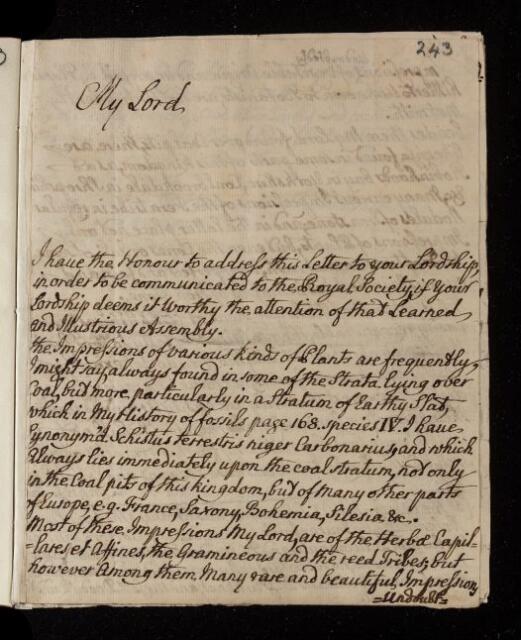 243
My Lord
I have the Honour to address this Letter to your Lordship,
in order to be communicated to the Royal Society, if your
Lordship deems it worthy the attention of that Learned
and Illustrious Assembly.
the Impressions of various kinds of Plants are frequently,
I might say, always found in some of the Strata lying over
Coal, but more particularly in a Stratum of Earthy Slat,
which in My History of fossils page 168. Species IV. I have
Synonym'd Schistus terrestris niger Carbonarius, and which
Always lies immediately upon the coal stratum, not only
in the Coal pits of this kingdom, but of many other parts
of Europe, e.g. France, Saxony, Bohemia, Silesia &c.
Most of these Impressions My Lord, are of the Herbæ Capil-
lares et Affines, the Gramineous and the reed Tribes, but
however Among them Many rare and beautiful Impressions
=Undoubt=